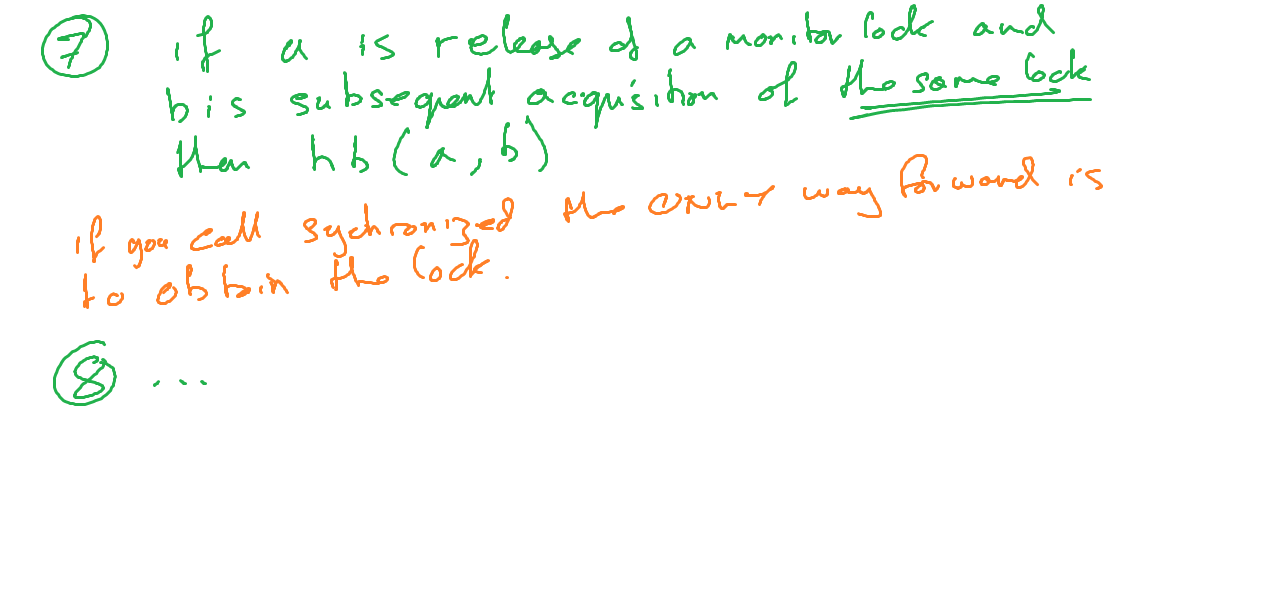 7 if a is release of a monitor lock and
b is subsequent acquisition of the same lock
then hb(a,b)
if you call sychronized the ONLY way forward is
to obtain the lock.
8 ...